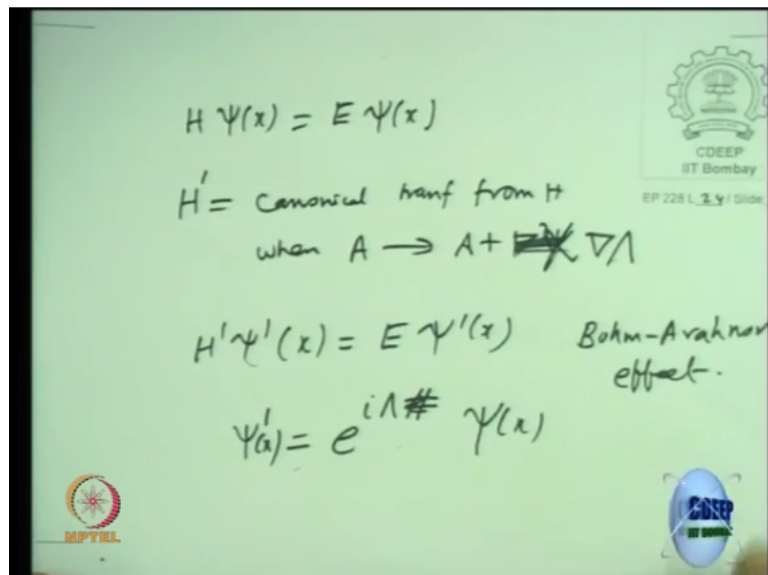 H Ψ(x) = E Ψ(x)
CDEEP
IIT Bombay
EP 228 L 24 / Slide
H' = Canonical tranf from H
when A → A + ∇Λ
H'Ψ'(x) = E Ψ'(x)
Bohm-Arahnov
effect.
Ψ'(x) = e^{iΛ} Ψ(x)
NPTEL
CDEEP
IIT BOMBAY